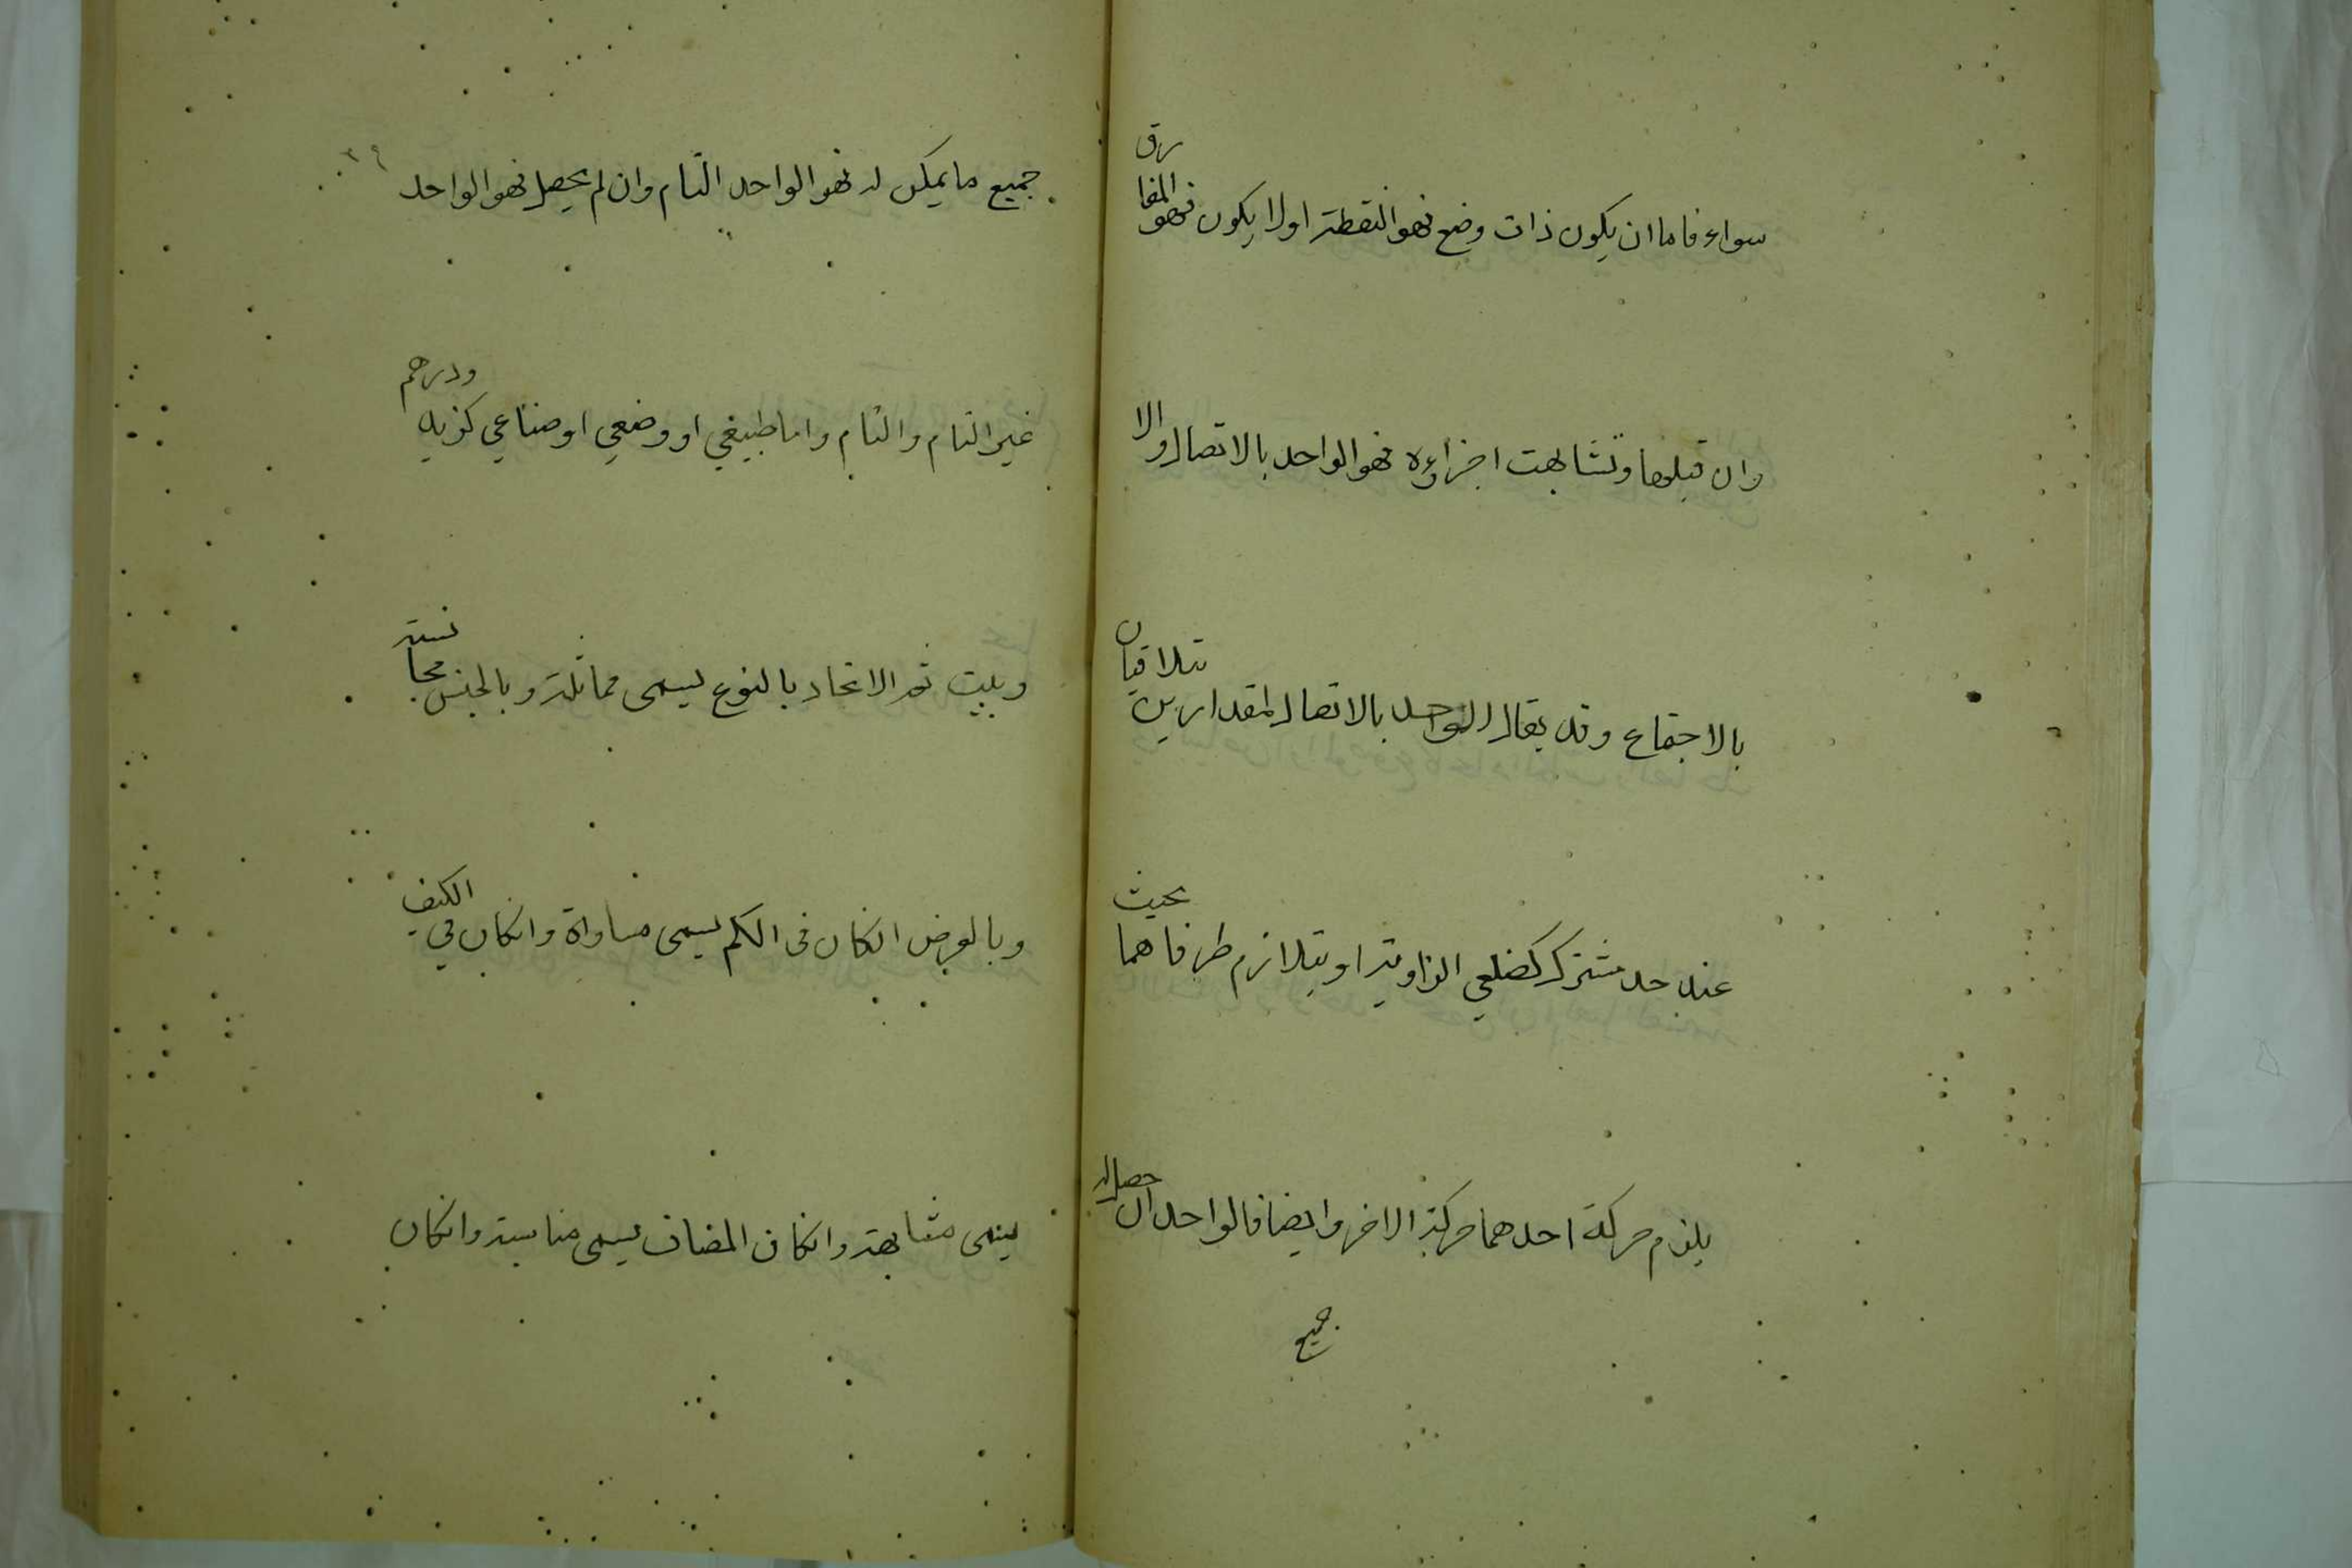 سواء فاما ان يكون ذات وضع فهو النقطة او لا يكون فهو المفارق
وان قبلها وتشابهت اجزاؤه فهو الواحد بالاتصال والا
بالاجتماع وقد يقال الواحد بالاتصال لمقدارين يتلاقيان
عند حد مشترك كضلعي الزاوية او يتلازم طرفاهما بحيث
يلزم حركة احدهما حركة الاخر وايضا فالواحد ان حصل له
جميع
٣٩
جميع ما يمكن له فهو الواحد التام وان لم يحصل فهو الواحد
غير التام والتام واما طبيعي او وضعي او صناعي كزيد ودرهم
وبيت ثم الاتحاد بالنوع يسمى مماثلة وبالجنس مجانسة
وبالعرض انكان فى الكم يسمى مساواة وانكان في الكيف
يسمى مشابهة وانكان المضاف يسمى مناسبة وانكان